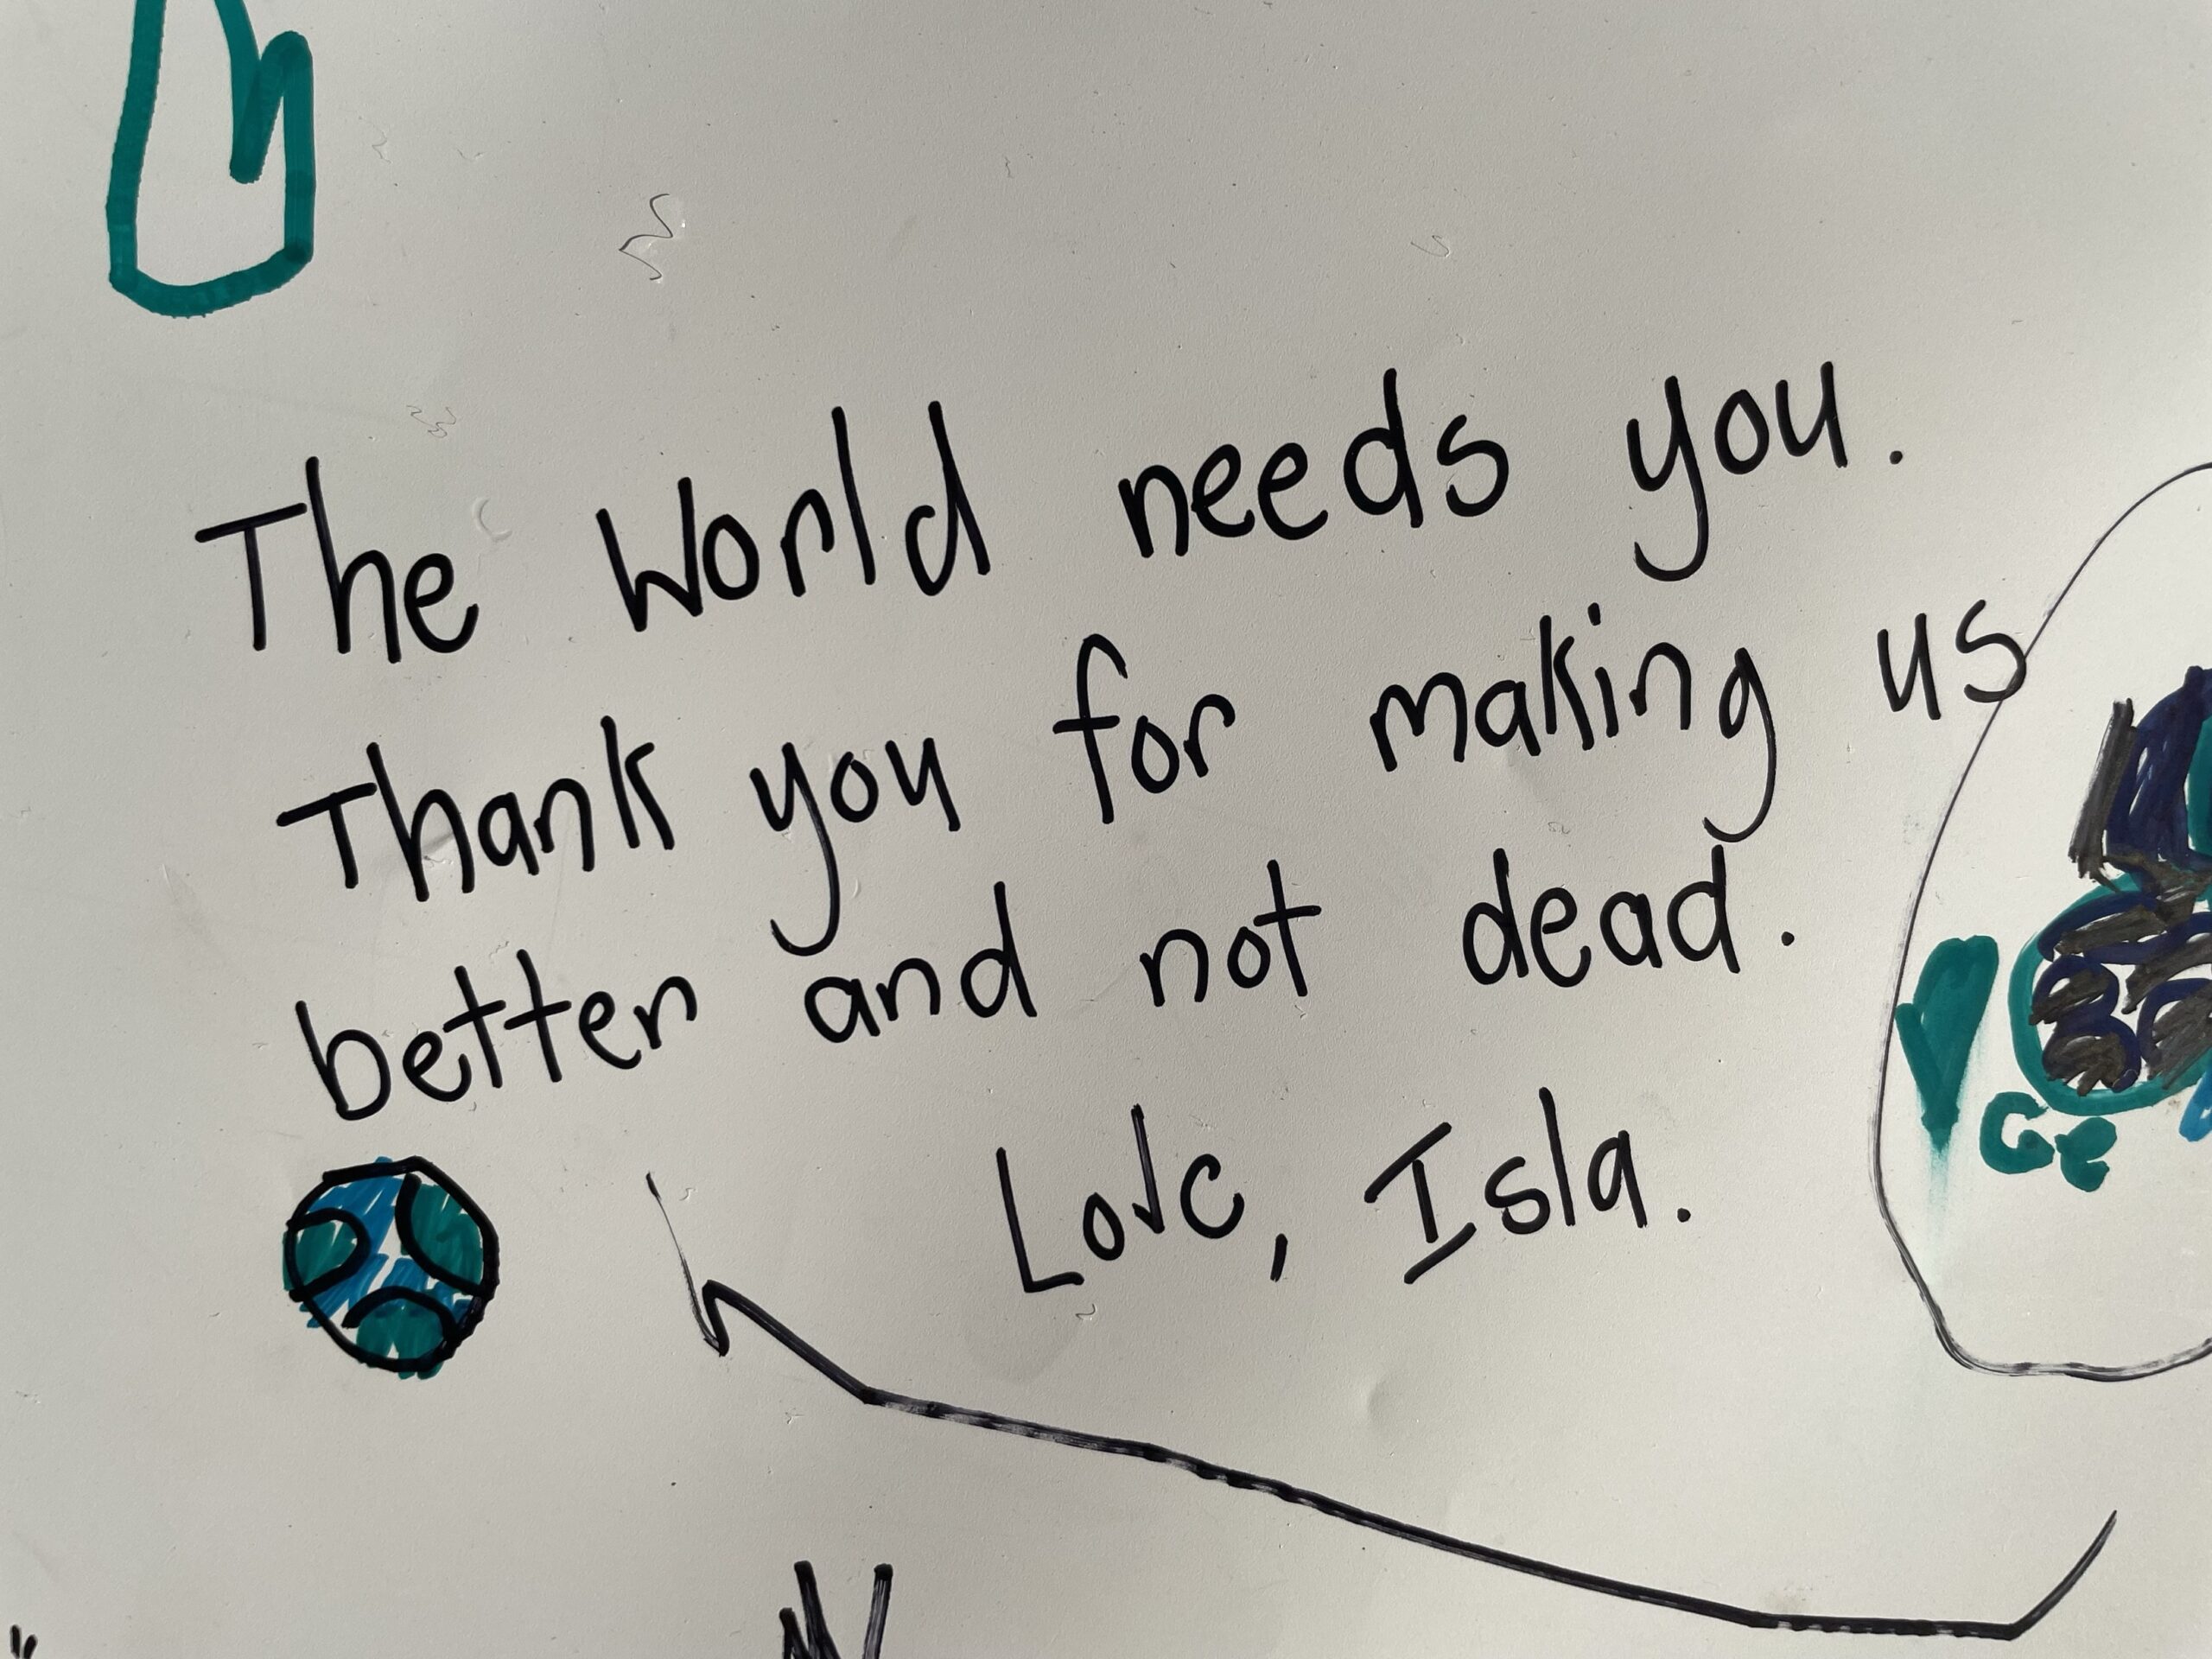 The World needs you.
Thank you for making us
better and not dead.
Love, Isla.